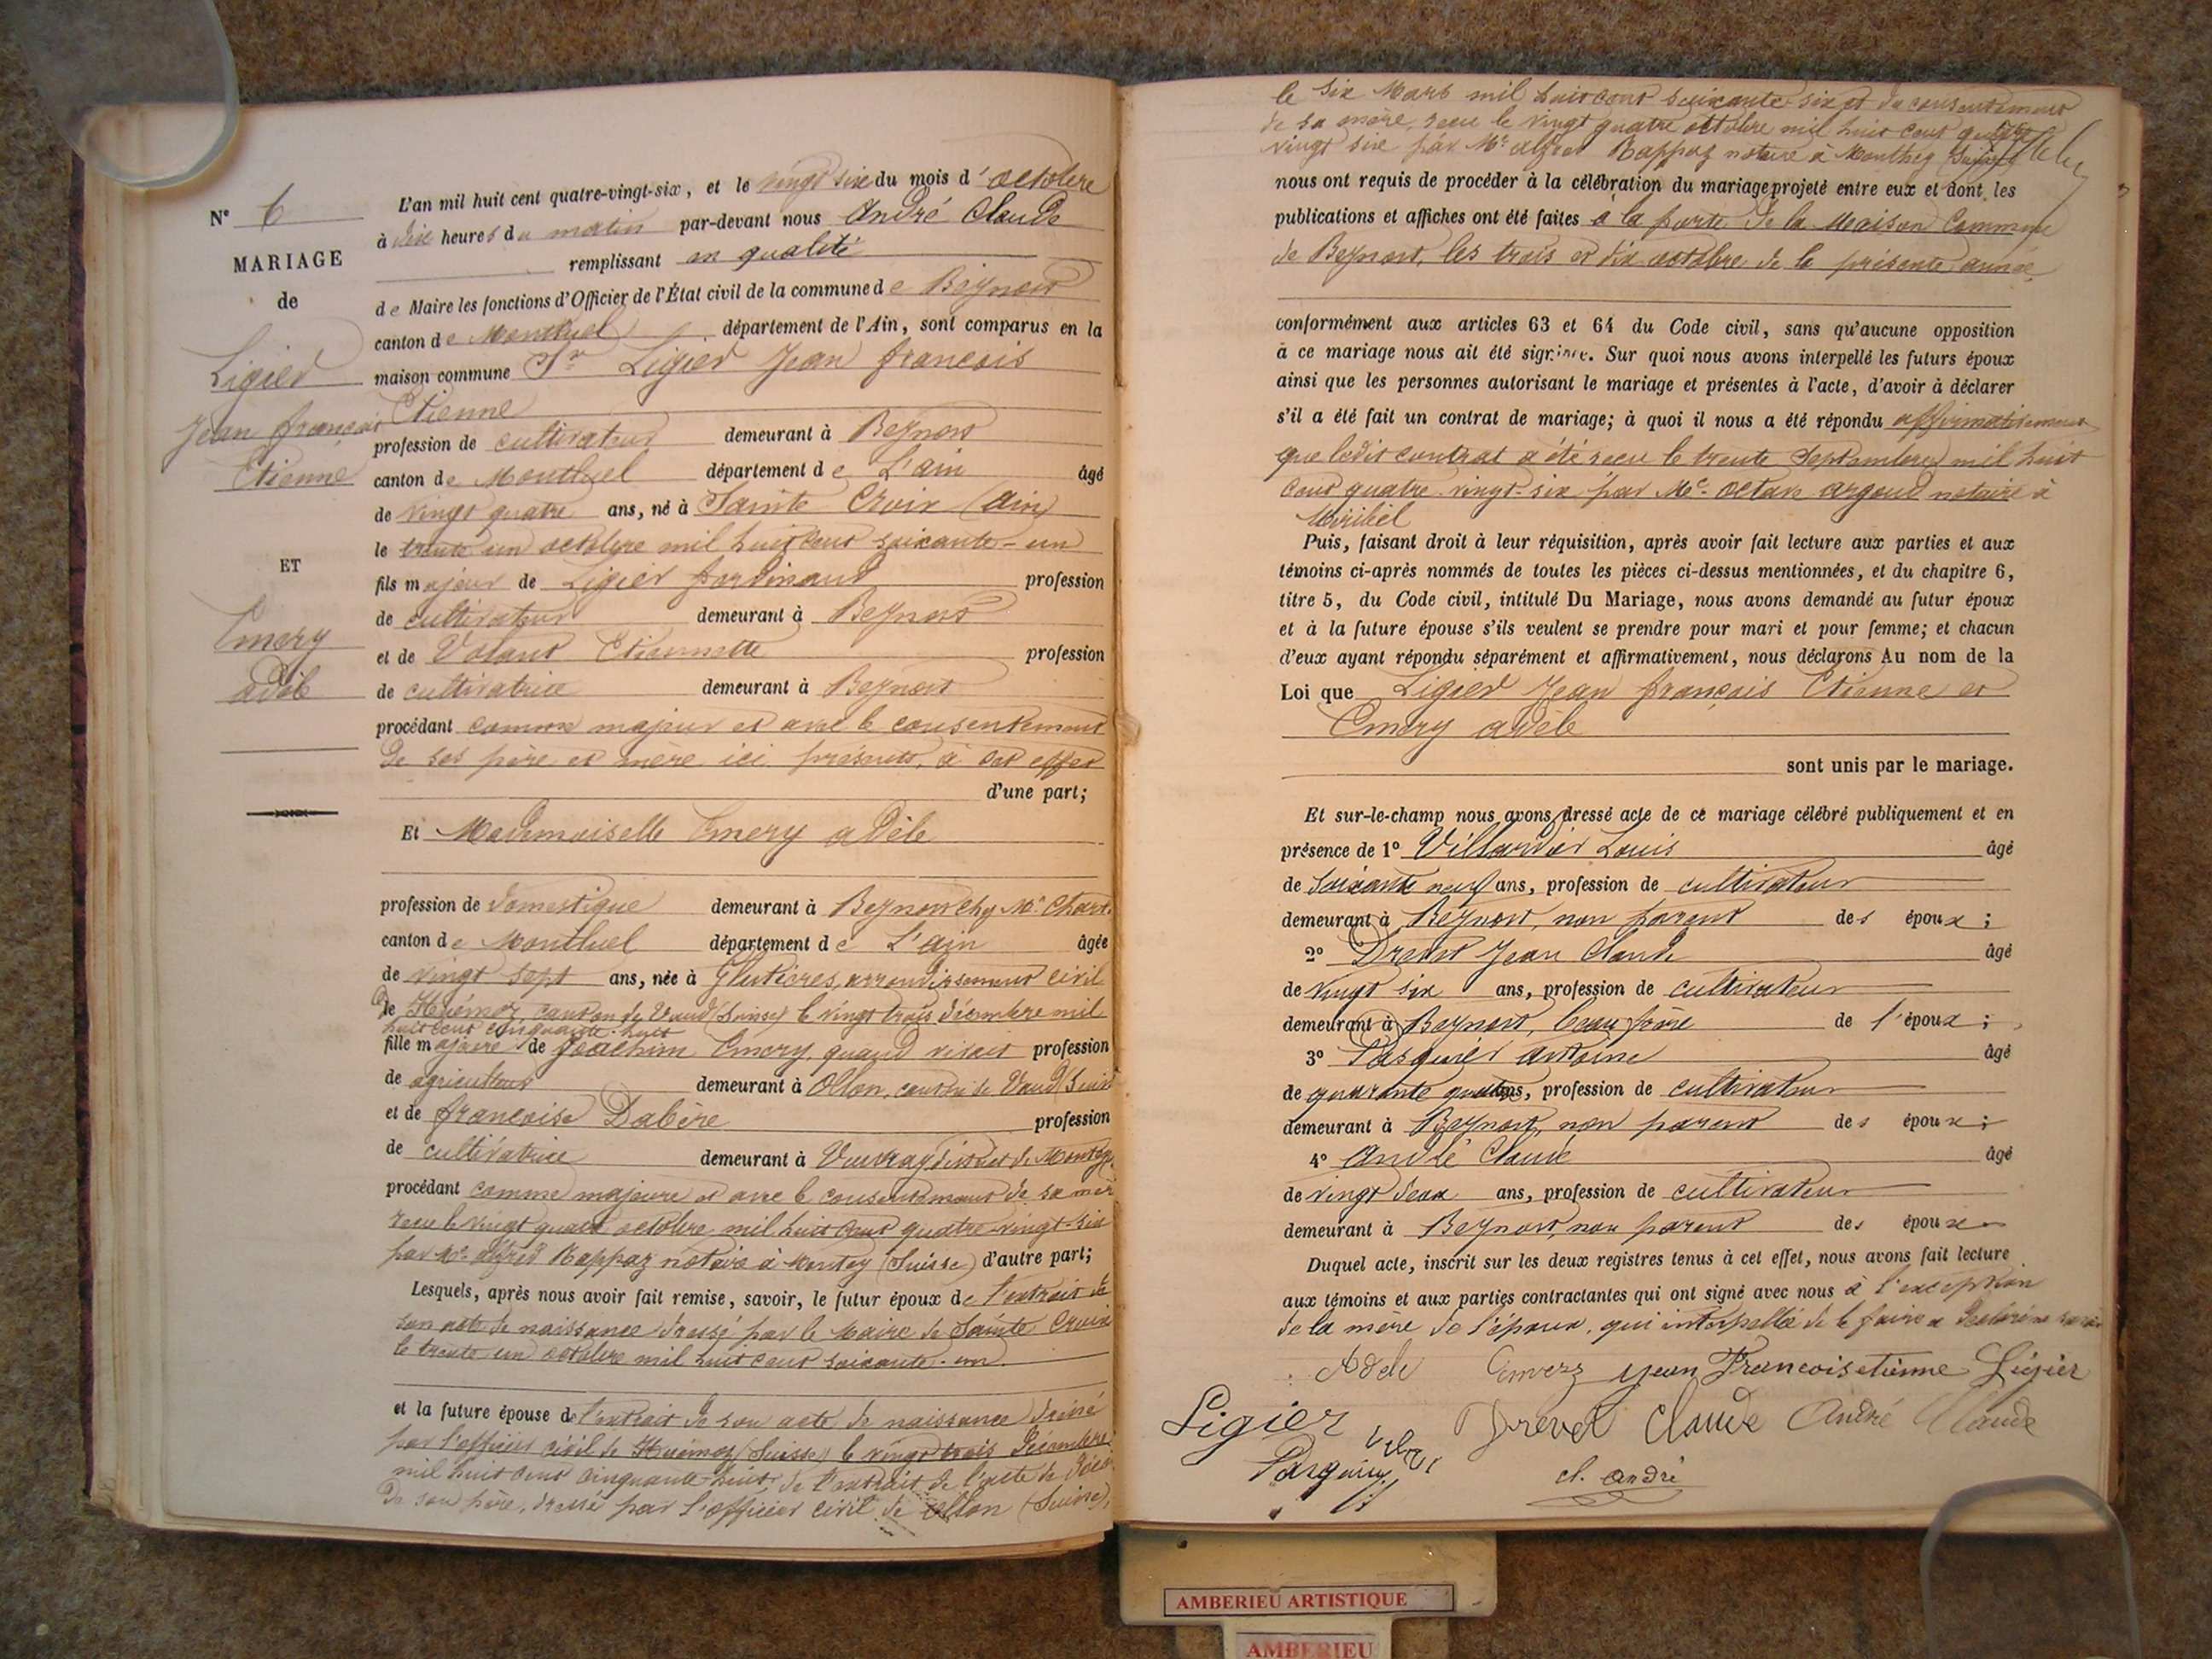 N° 6
MARIAGE
de
Ligier
Jean françois
Etienne
ET
Emery
adèle
L'an mil huit cent quatre-vingt-six, et le vingt six du mois d'octobre
à dix heures du matin par-devant nous André Claude
remplissant en qualité
de Maire les fonctions d'Officier de l'État civil de la commune de Beynost
canton de Montluel département de l'Ain, sont comparus en la
maison commune Sr Ligier Jean françois
Etienne
profession de cultivateur demeurant à Beynost
canton de Montluel département de L'ain âgé
de vingt quatre ans, né à Sainte Croix (ain)
le trente un octobre mil huit cent soixante-un
fils majeur de Ligier ferdinand profession
de cultivateur demeurant à Beynost
et de Volant Etiennette profession
de cultivatrice demeurant à Beynost
procédant comme majeur et avec le consentement
de ses père et mère ici présents, à cet effet
d'une part;
Et Mademoiselle Emery adèle
profession de domestique demeurant à Beynost chez Mr
canton de Montluel département de L'ain âgée
de vingt sept ans, née à arrondissement civil
de Huémoz, canton de Vaud (Suisse) le vingt trois décembre mil
huit cent cinquante-huit
fille majeure de Joachim Emery, quand vivait profession
de agriculteur demeurant à Ollon, canton de Vaud (Suisse
et de françoise Dabère profession
de cultivatrice demeurant à district de
procédant comme majeure et avec le consentement de sa mère
reçu le vingt quatre octobre mil huit cent quatre-vingt-six
par Me alfred Rappaz notaire à Montey (Suisse) d'autre part;
Lesquels, après nous avoir fait remise, savoir, le futur époux de l'extrait de
son acte de naissance dressé par le Maire de Sainte Croix
le trente un octobre mil huit cent soixante-un
et la future épouse de l'extrait de son acte de naissance dressé
par l'officier civil de Huémoz (Suisse) le vingt trois Décembre
mil huit cent cinquante-huit, de l'extrait de l'acte de décès
de son père, dressé par l'officier civil de Ollon (Suisse),
le six Mars mil huit cent soixante-six et du consentement
de sa mère, reçu le vingt quatre octobre mil huit cent quatre
vingt six par Me alfred Rappaz notaire à Monthey (Suisse)
nous ont requis de procéder à la célébration du mariage projeté entre eux et dont les
publications et affiches ont été faites à la porte de la Maison Commune
de Beynost, les trois et dix octobre de la présente année
conformément aux articles 63 et 64 du Code civil, sans qu'aucune opposition
à ce mariage nous ait été signifiée. Sur quoi nous avons interpellé les futurs époux
ainsi que les personnes autorisant le mariage et présentes à l'acte, d'avoir à déclarer
s'il a été fait un contrat de mariage; à quoi il nous a été répondu affirmativement
que ledit contrat a été reçu le trente Septembre mil huit
cent quatre-vingt-six par Me octave argoud notaire à
Miribel
Puis, faisant droit à leur réquisition, après avoir fait lecture aux parties et aux
témoins ci-après nommés de toutes les pièces ci-dessus mentionnées, et du chapitre 6,
titre 5, du Code civil, intitulé Du Mariage, nous avons demandé au futur époux
et à la future épouse s'ils veulent se prendre pour mari et pour femme; et chacun
d'eux ayant répondu séparément et affirmativement, nous déclarons Au nom de la
Loi que Ligier Jean françois Etienne et
Emery adèle
sont unis par le mariage.
Et sur-le-champ nous avons dressé acte de ce mariage célébré publiquement et en
présence de 1° Villardier Louis âgé
de soixante neuf ans, profession de cultivateur
demeurant à Beynost, non parent des époux;
2° Drevet Jean Claude âgé
de vingt six ans, profession de cultivateur
demeurant à Beynost, beau frère de l'époux;
3° Pasquier antoine âgé
de quarante quatre ans, profession de cultivateur
demeurant à Beynost, non parent des époux;
4° André Claude âgé
de vingt deux ans, profession de cultivateur
demeurant à Beynost, non parent des époux
Duquel acte, inscrit sur les deux registres tenus à cet effet, nous avons fait lecture
aux témoins et aux parties contractantes qui ont signé avec nous à l'exception
de la mère de l'époux, qui interpellée de le faire a déclaré ne savoir
Adele Emery Jean Francois etienne Ligier
Ligier Drevet Claude André Claude
Pasquier cl. andré
AMBERIEU ARTISTIQUE
AMBERIEU